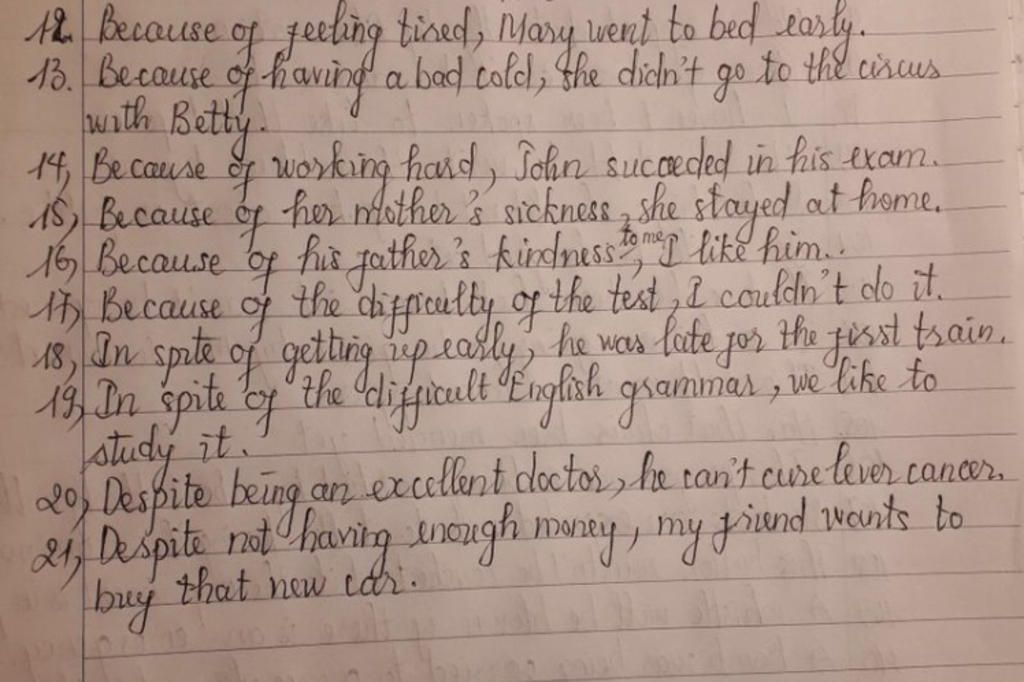 12. Because of feeling tired, Mary went to bed early.
13. Because of having a bad cold, she didn't go to the circus
with Betty.
14, Because of working hard, John succeeded in his exam.
15, Because of her mother's sickness, she stayed at home.
16, Because of his father's kindness to me, I like him..
17, Because of the difficulty of the test, I couldn't do it.
18, In spite of getting up early, he was late for the first train.
19, In spite of the difficult English grammar, we like to
study it.
20, Despite being an excellent doctor, he can't cure lever cancer.
21, Despite not having enough money, my friend wants to
buy that new car.